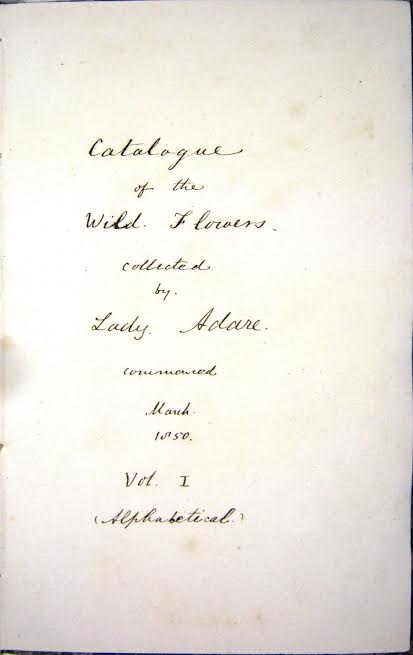 Catalogue
of the
Wild. Flowers.
collected
by.
Lady. Adare.
commenced
March.
1850.
Vol. I
(Alphabetical.)